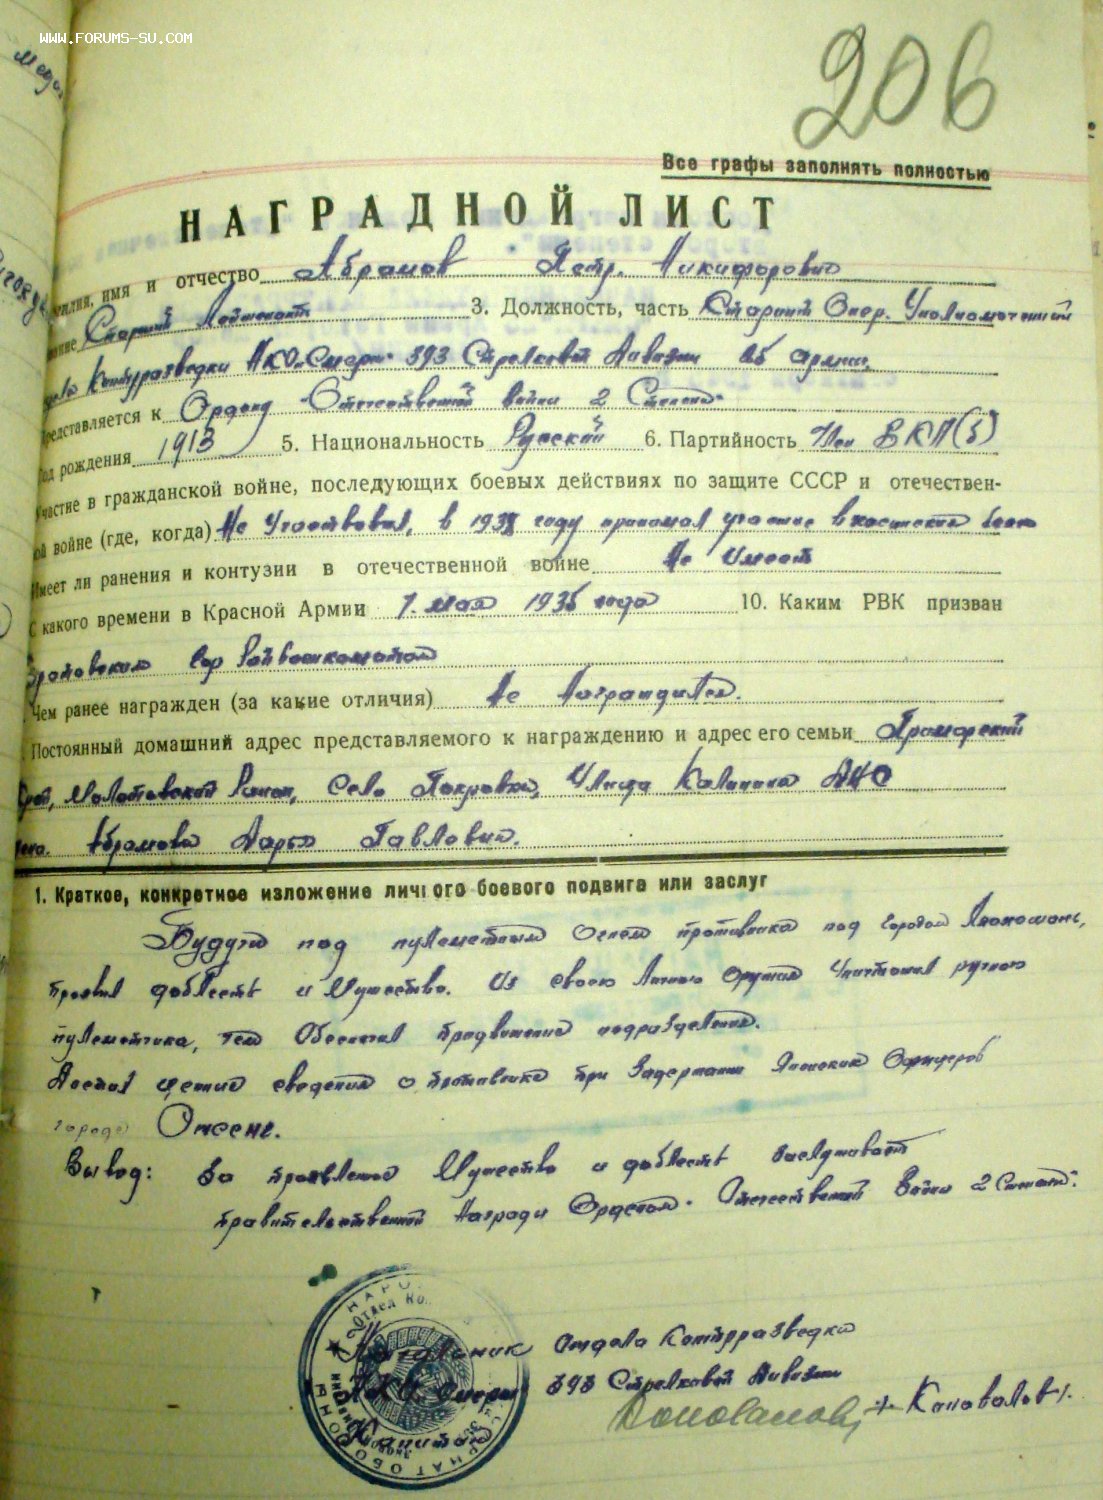 WWW.FORUMS-SU.COM
206
Все графы заполнять полностью
НАГРАДНОЙ ЛИСТ
имя и отчество Абрамов Петр Никифорович
Старший Лейтенант 3. Должность, часть Старший Опер. Уполномоченный
Контрразведки НКО „Смерш" 393 Стрелковой Дивизии 25 армии,
представляется к Ордену "Отечественной войны 2 Степени"
Год рождения 1913 5. Национальность Русский 6. Партийность Член ВКП(б)
Участие в гражданской войне, последующих боевых действиях по защите СССР и отечествен-
ной войне (где, когда) Не Участвовал, в 1938 году принимал участие в хасанских боях
Имеет ли ранения и контузии в отечественной войне Не Имеет
С какого времени в Красной Армии 7. мая 1935 года 10. Каким РВК призван
Гор Райвоенкоматом
Чем ранее награжден (за какие отличия) Не Награждался.
Постоянный домашний адрес представляемого к награждению и адрес его семьи Приморский
Край, Молотовский Район, Село Покровка, Улица Калинина
Жена. Абрамова Дарья Павловна.
1. Краткое, конкретное изложение личного боевого подвига или заслуг
Будучи под пулеметным Огнем противника под городом
проявил доблесть и Мужество. Из своего Личного Оружия Уничтожил ручного
пулеметчика, тем Обеспечил продвижение подразделения.
Достал ценные сведения о противнике при Задержании Японских Офицеров
городе
Вывод: За проявленное Мужество и доблесть заслуживает
правительственной Награды Орденом "Отечественной Войны 2 Степени".
Начальник Отдела Контрразведки
НКО „Смерш" 393 Стрелковой Дивизии
Капитан Коновалов /Коновалов/.